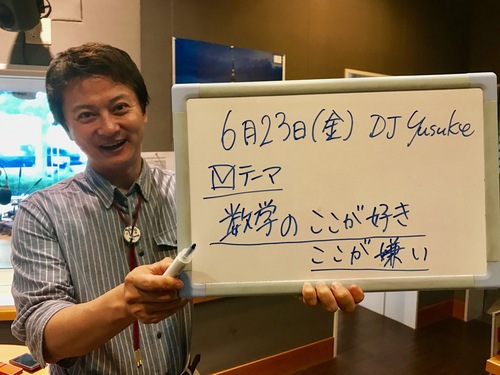 6月23日(金) DJ Yusuke
テーマ
数学の ここが好き
ここが嫌い